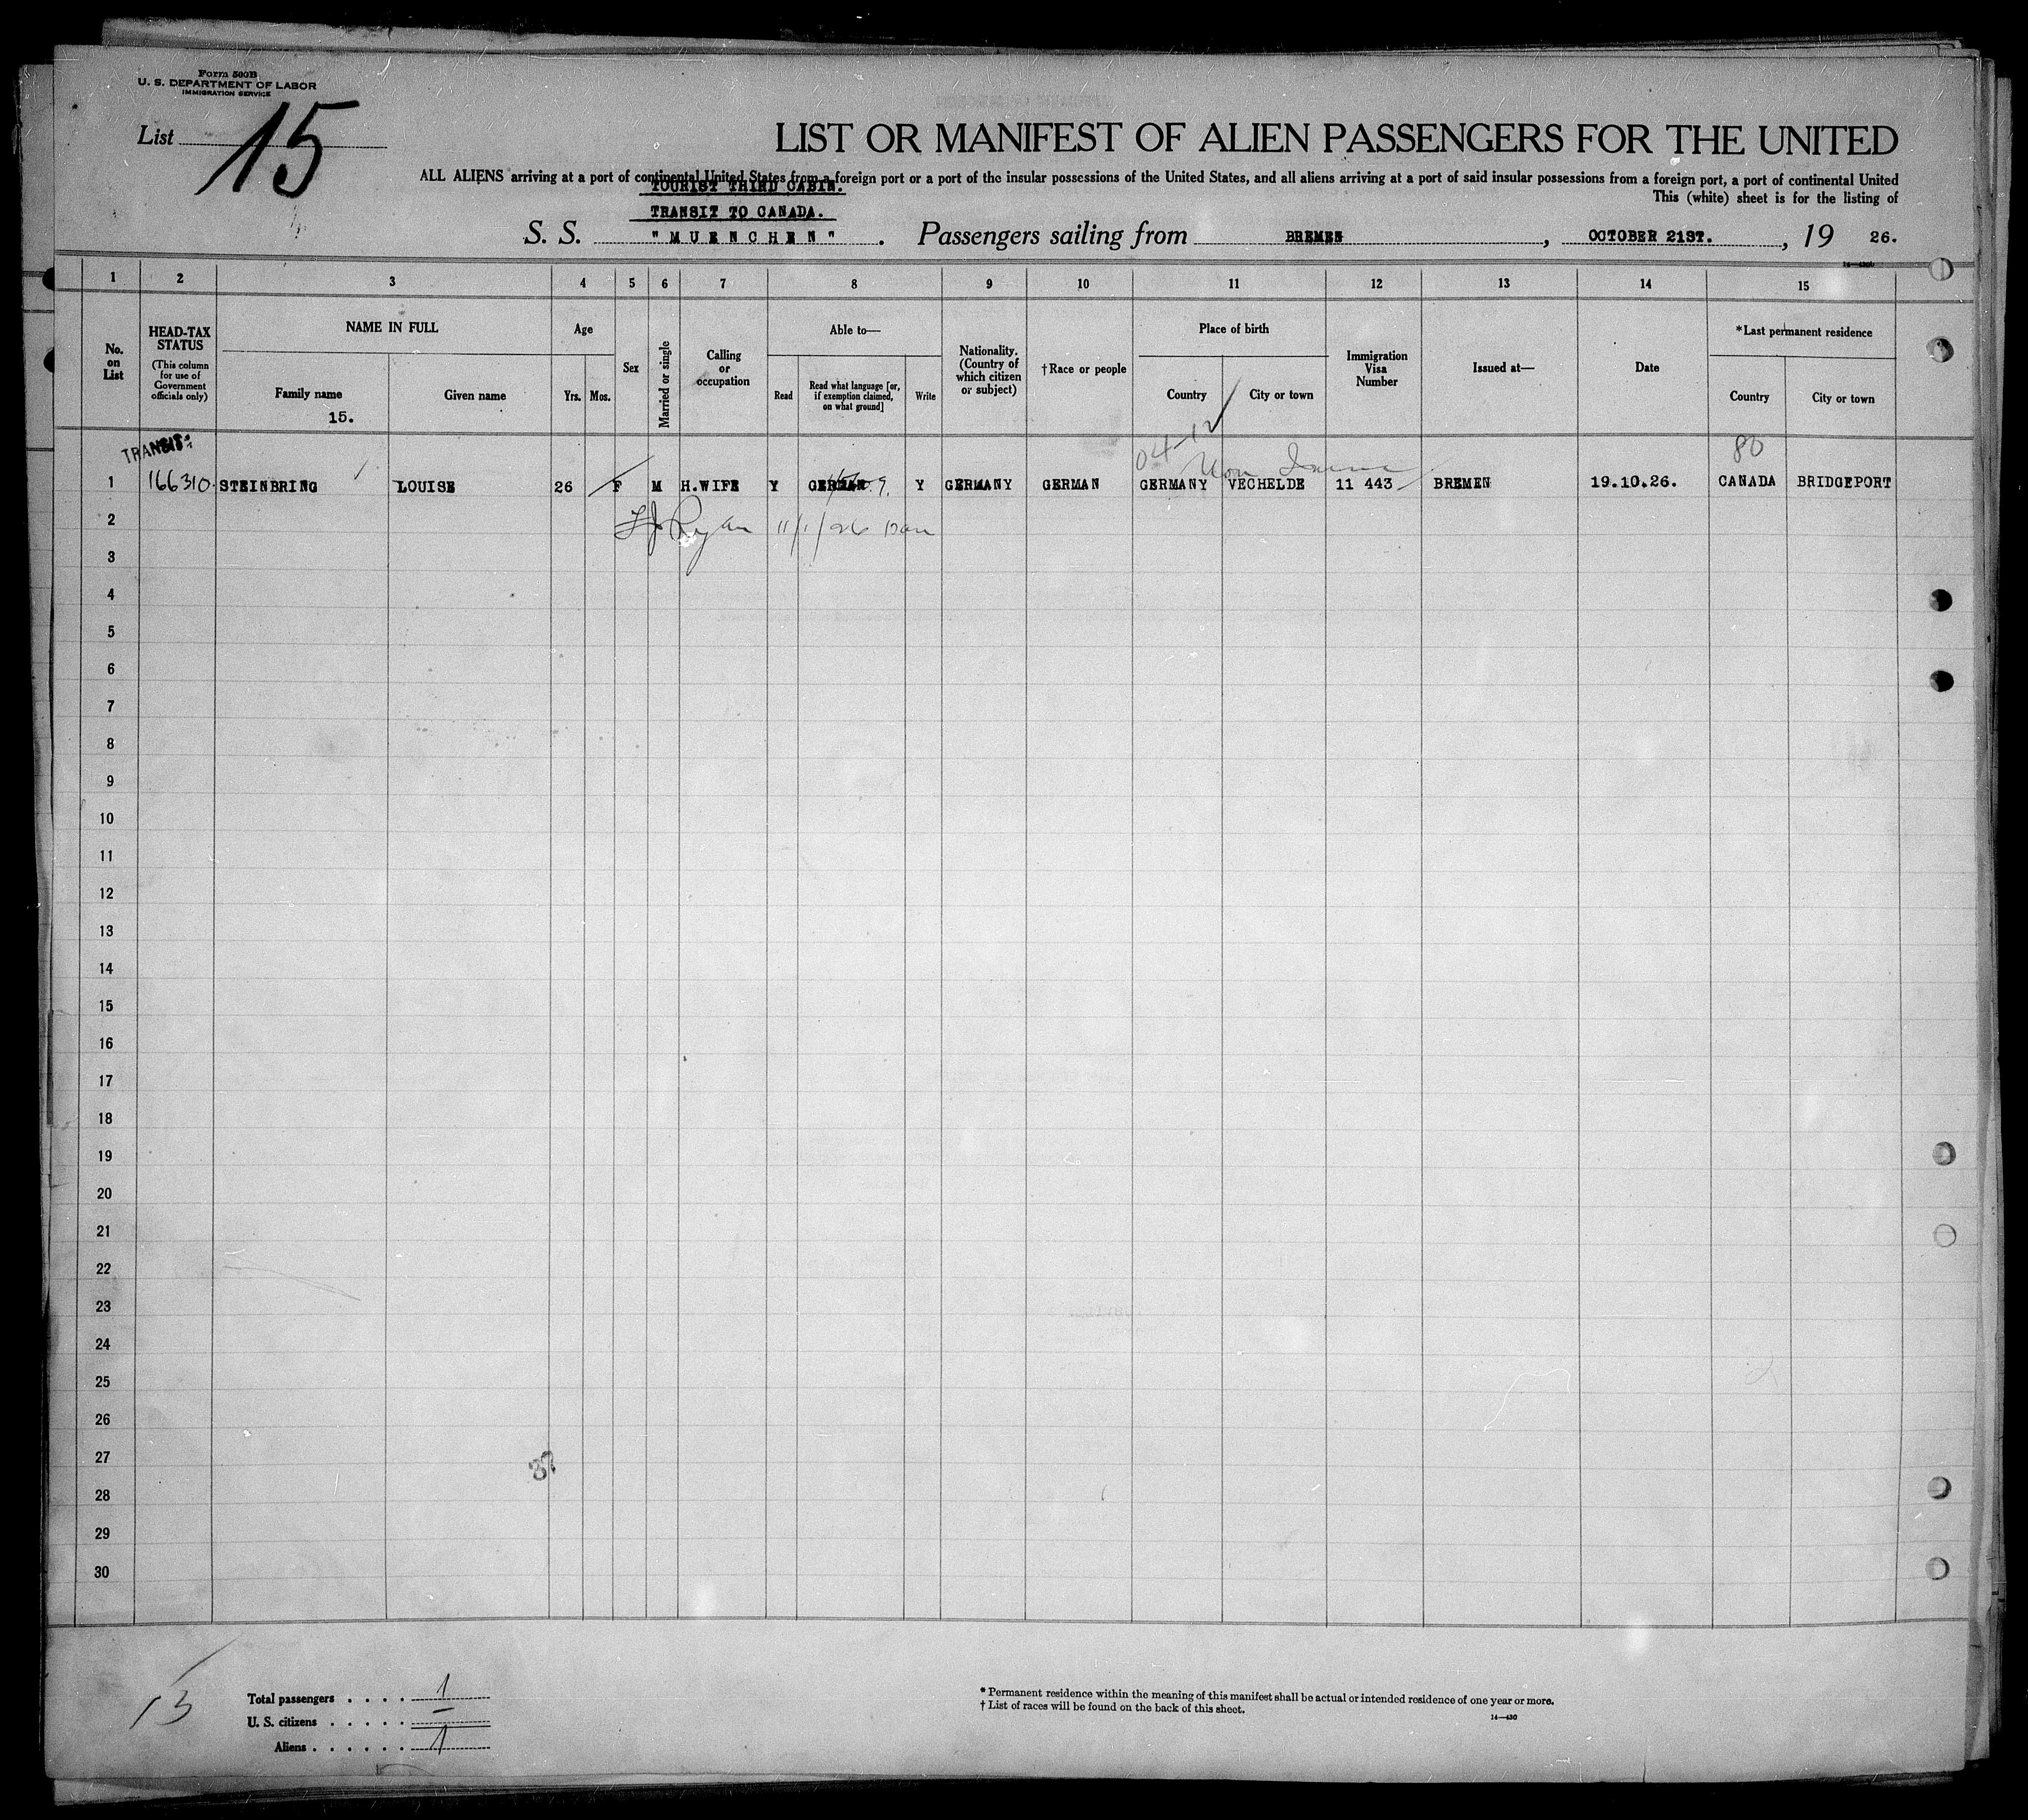 Form 500B
U. S. DEPARTMENT OF LABOR
IMMIGRATION SERVICE
List 15
LIST OR MANIFEST OF ALIEN PASSENGERS FOR THE UNITED
ALL ALIENS arriving at a port of continental United States from a foreign port or a port of the insular possessions of the United States, and all aliens arriving at a port of said insular possessions from a foreign port, a port of continental United
TOURIST THIRD CABIN.
This (white) sheet is for the listing of
TRANSIT TO CANADA.
S. S. "MUENCHEN". Passengers sailing from BREMEN, OCTOBER 21ST., 19 26.
1 2 3 4 5 6 7 8 9 10 11 12 13 14 15
No. on List
HEAD-TAX STATUS
(This column for use of Government officials only)
NAME IN FULL
Family name
15.
Given name
Age
Yrs. Mos.
Sex
Married or single
Calling or occupation
Able to—
Read
Read what language [or, if exemption claimed, on what ground]
Write
Nationality. (Country of which citizen or subject)
†Race or people
Place of birth
Country
City or town
Immigration Visa Number
Issued at—
Date
*Last permanent residence
Country
City or town
TRANSIT.
04-12
80
1 166310. STEINBRING LOUISE 26 F M H.WIFE Y GERMAN Y GERMANY GERMAN GERMANY VECHELDE 11 443 BREMEN 19.10.26. CANADA BRIDGEPORT
2 Ryan 11/1/26
3
4
5
6
7
8
9
10
11
12
13
14
15
16
17
18
19
20
21
22
23
24
25
26
27
28
29
30
13
Total passengers . . . . 1
U. S. citizens . . . . . —
Aliens . . . . . . 1
* Permanent residence within the meaning of this manifest shall be actual or intended residence of one year or more.
† List of races will be found on the back of this sheet.
14—430